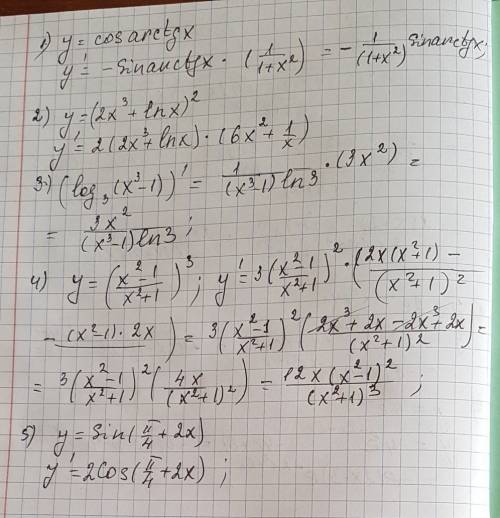 1) y = cos arctg x
y' = -sin arctg x · (1/(1+x²)) = - 1/(1+x²) sin arctg x;
2) y = (2x³ + ln x)²
y' = 2(2x³ + ln x) · (6x² + 1/x)
3.) (log₃ (x³-1))' = 1/((x³-1) ln 3) · (3x²) =
= 3x²/((x³-1) ln 3);
4) y = ((x²-1)/(x²+1))³; y' = 3((x²-1)/(x²+1))² · (2x(x²+1) - /(x²+1)²
- (x²-1)·2x) = 3((x²-1)/(x²+1))² ((2x³ + 2x - 2x³ + 2x)/(x²+1)²) =
= 3((x²-1)/(x²+1))² (4x/(x²+1)²) = 12x(x²-1)²/(x²+1)³ ;
5) y = sin(π/4 + 2x)
y' = 2cos(π/4 + 2x) ;